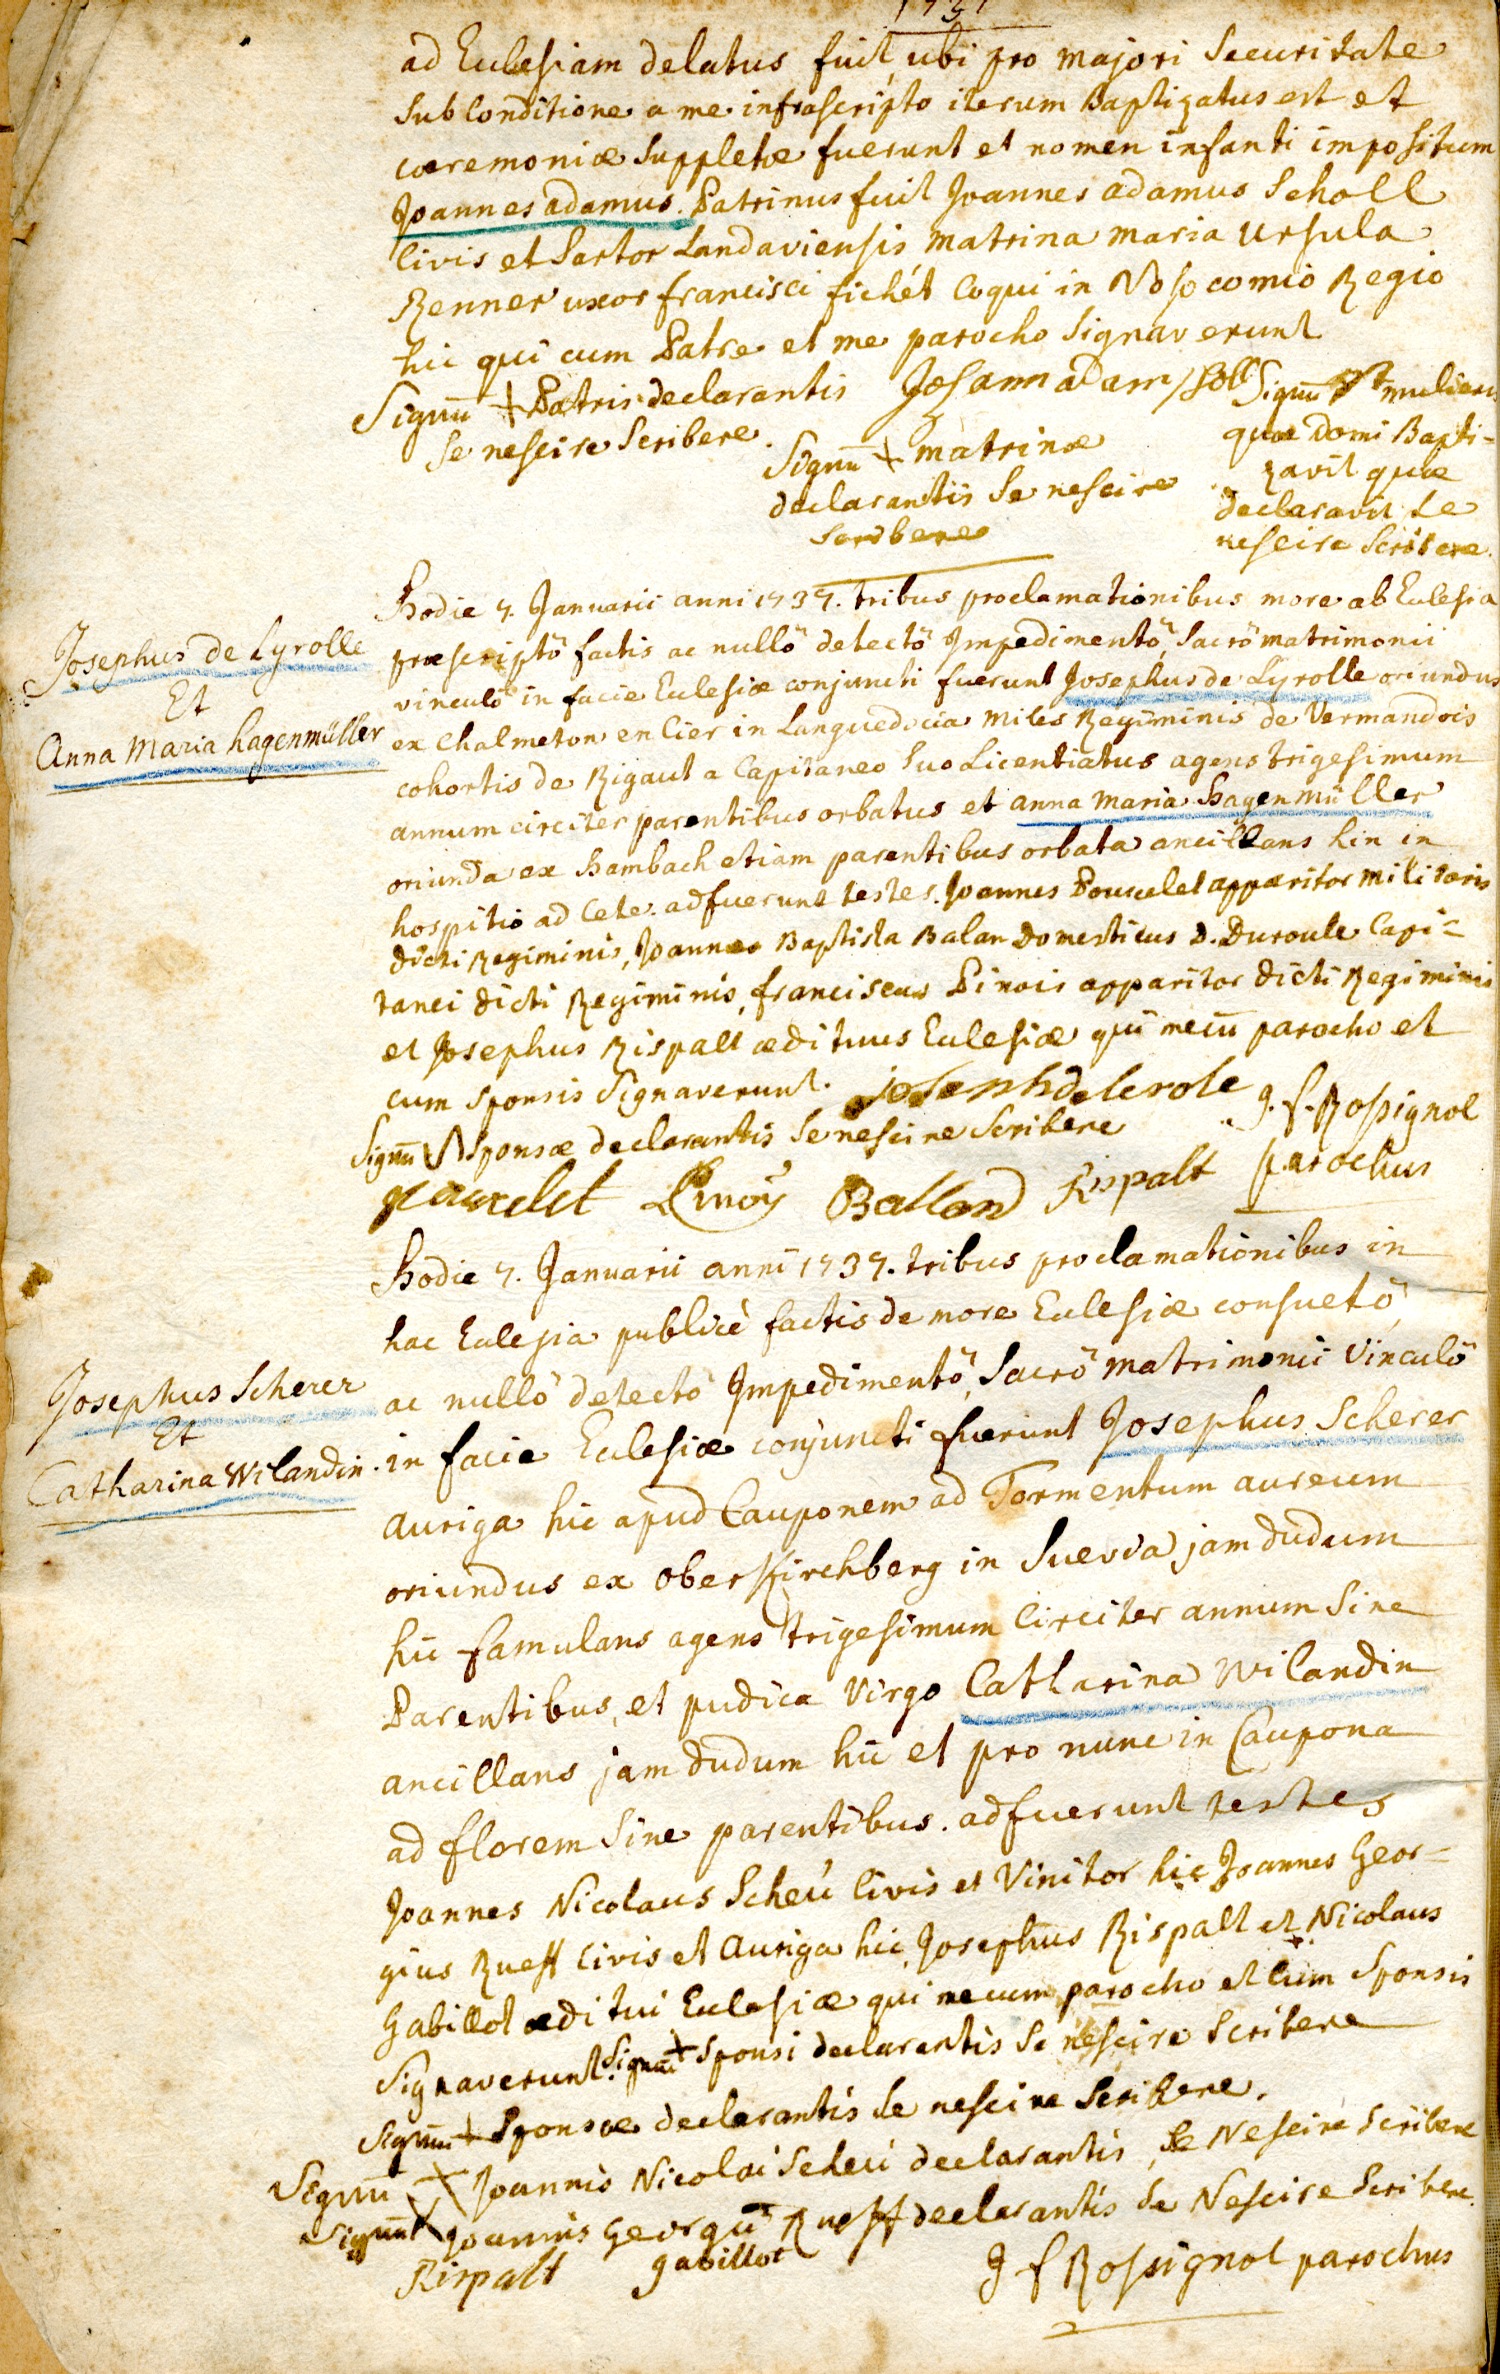 1737
ad Eulesiam delatus fuit, ubi pro majori Securitate
sub Conditione a me infrascripto iterum Baptizatus est et
cæremoniæ suppletæ fuerunt et nomen infanti impositum
Joannes adamus. Patrinus fuit Joannes adamus Scholl
Civis et Sartor Landaviensis, matrina maria Ursula
Renner uxor francisci fichét Coqui in Nosocomio Regio
hic qui cum Patre et me parocho Signaverunt
Signū + Patris declarantis
se nescire Scribere.
Johann adam
Signū + matrinæ
declarantis se nescire
scribere
Signū mulieris
quæ Domi Bapti=
zavit quæ
declaravit se
nescire Scribere.
Josephus de Lyrolle
Et
Anna Maria hagenmüller
Hodie 7. Januarii anni 1737. tribus proclamationibus more ab Eulesia
præscriptô factis ac nullô detectô Impedimentô, Sacrô matrimonii
vinculô in facie Eulesiæ conjuncti fuerunt Josephus de Lyrolle oriundus
ex Chalmeton en Cier in Languedocia miles Regiminis de Vermandois
cohortis de Rigaut a Capitaneo Suo Licentiatus agens trigesimum
annum circiter parentibus orbatus et anna maria Hagenmüller
oriunda ex Hambach etiam parentibus orbata ancillans hin in
hospitio ad Cete. adfuerunt testes. Joannes Pouxelet apparitor militaris
dicti Regiminis, Joannes Baptista Balan Domesticus D. Duroule Capi=
tanei dicti Regiminis, franciscus Pinois apparitor dicti Regiminis
et Josephus Rispalt ædituus Eulesiæ qui mecū parocho et
cum sponsis Signaverunt. josenhdelerole
Signū sponsæ declarantis se nescire Scribere
J. f. Rossignol
parochus
pauxelet Pinoy Balland Rispalt
Hodie 7. Januarii anni 1737. tribus proclamationibus in
hac Eulesia publicè factis de more Eulesiæ consuetô,
ac nullô detectô Impedimentô, Sacrô matrimonii Vinculô
Josephus Scherer
Et
Catharina Wilandin.
in facie Eulesiæ conjuncti fuerunt Josephus Scherer
auriga hic apud Cauponem ad Tormentum aureum
oriundus ex ober Kirchberg in Suevia jam dudum
hic famulans agens trigesimum Circiter annum Sine
Parentibus, et pudica Virgo Catharina Wilandin
ancillans jam dudum hic et pro nunc in Caupona
ad florem Sine parentibus. adfuerunt testes
Joannes Nicolaus Scheü Civis et Vinitor hic Joannes Geor=
gius Rueff Civis et auriga hic, Josephus Rispalt et Nicolaus
Gabillot æditui Eulesiæ qui mecum parocho et cum Sponsis
Signaverunt. Signū + Sponsi declarantis se nescire Scribere
Signum + Sponsæ declarantis se nescire Scribere.
Signū + Joannis Nicolai Scheü declarantis, se Nescire Scribere
Signū + joannis Georgii Rueff declarantis se Nescire Scribere.
Rispalt gabillot J f Rossignol parochus